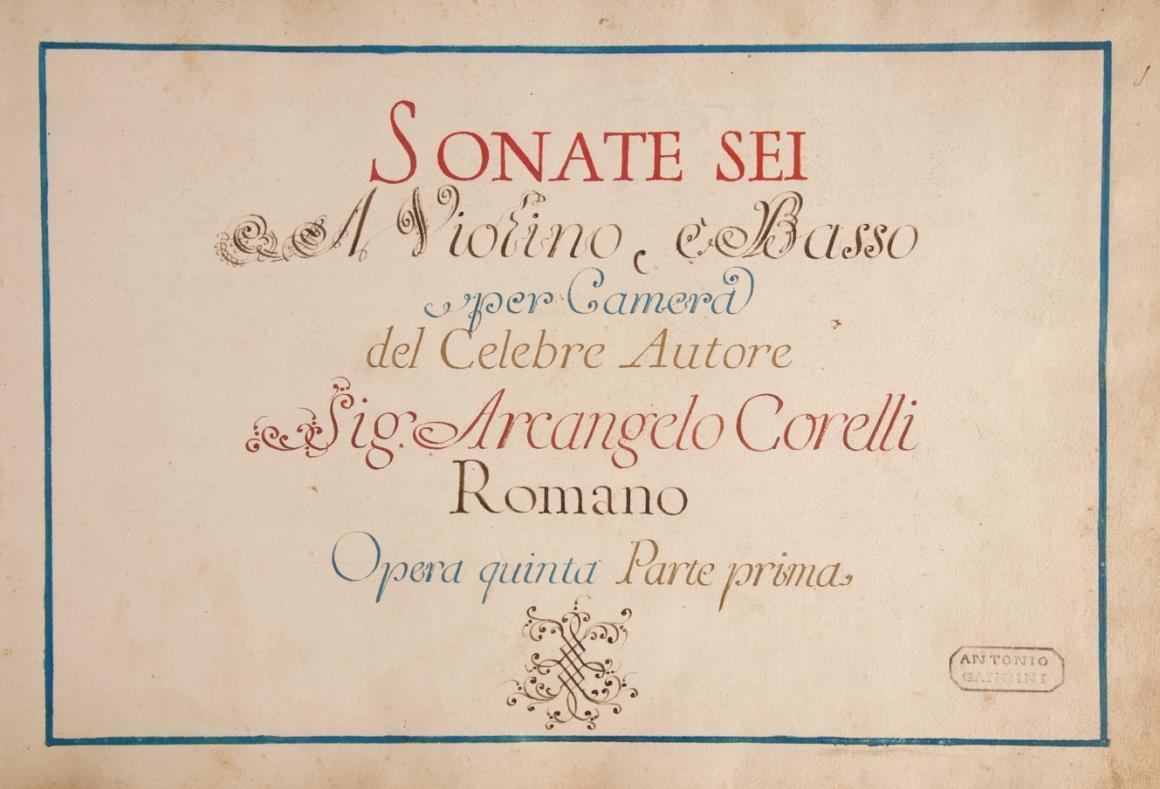 SONATE SEI
A Violino, e Basso
per Camera
del Celebre Autore
Sig. Arcangelo Corelli
Romano
Opera quinta Parte prima
ANTONIO
GANDINI